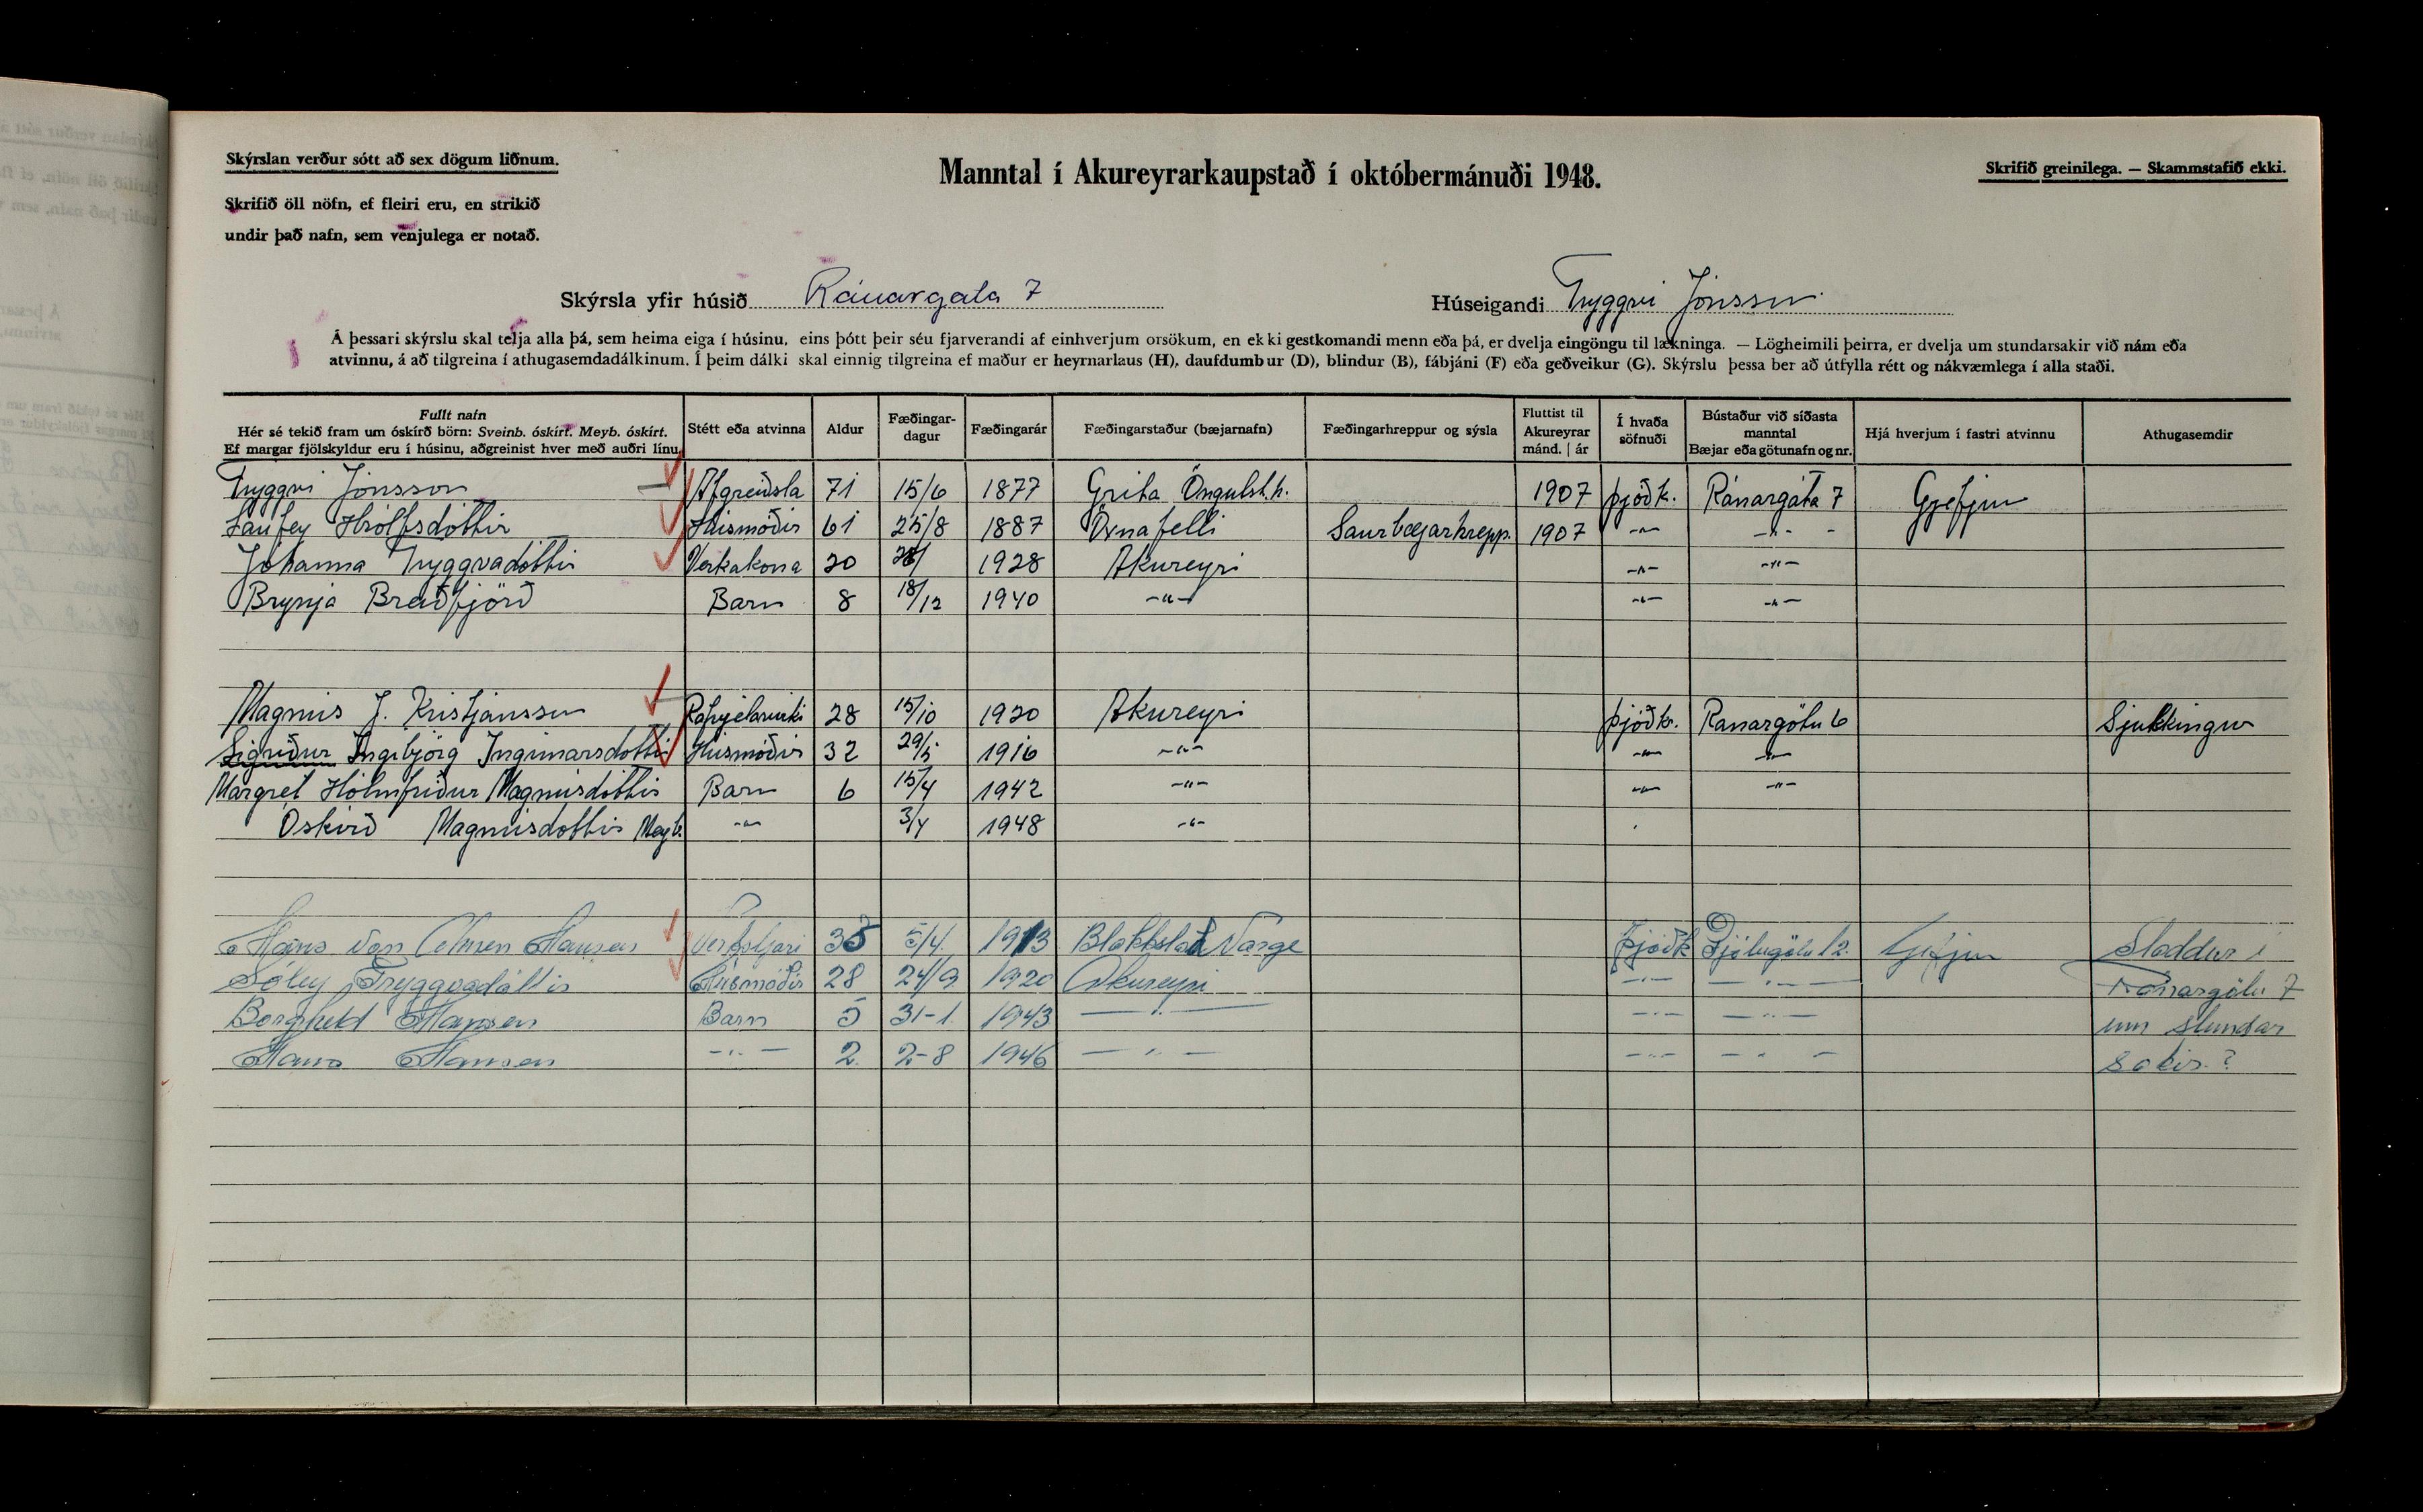 Skýrslan verður sótt að sex dögum liðnum.
Skrifið öll nöfn, ef fleiri eru, en strikið
undir það nafn, sem venjulega er notað.
Manntal í Akureyrarkaupstað í októbermánuði 1948.
Skrifið greinilega. — Skammstafið ekki.
Skýrsla yfir húsið Ránargata 7
Húseigandi Tryggvi Jónsson
Á þessari skýrslu skal telja alla þá, sem heima eiga í húsinu, eins þótt þeir séu fjarverandi af einhverjum orsökum, en ekki gestkomandi menn eða þá, er dvelja eingöngu til lækninga. — Lögheimili þeirra, er dvelja um stundarsakir við nám eða
atvinnu, á að tilgreina í athugasemdadálkinum. Í þeim dálki skal einnig tilgreina ef maður er heyrnarlaus (H), daufdumbur (D), blindur (B), fábjáni (F) eða geðveikur (G). Skýrslu þessa ber að útfylla rétt og nákvæmlega í alla staði.
Fullt nafn Hér sé tekið fram um óskírð börn: Sveinb. óskírt. Meyb. óskírt. Ef margar fjölskyldur eru í húsinu, aðgreinist hver með auðri línu. Stétt eða atvinna Aldur Fæðingar-dagur Fæðingarár Fæðingarstaður (bæjarnafn) Fæðingarhreppur og sýsla Fluttist til Akureyrar mánd. | ár Í hvaða söfnuði Bústaður við síðasta manntal Bæjar eða götunafn og nr. Hjá hverjum í fastri atvinnu Athugasemdir
Tryggvi Jónsson Afgreiðsla 71 15/6 1877 Grita Öngulst.h. 1907 þjóðk. Ránargáta 7 Gjefjun
Laufey Hrólfsdóttir Húsmóðir 61 25/8 1887 Öxnafelli Saurbæjarhrepp. 1907 -"- -"- -
Jóhanna Tryggvadóttir Verkakona 20 1928 Akureyri -"- -"-
Brynja Breiðfjörð Barn 8 18/12 1940 -"- -"- -"-
Magnús J. Kristjánsson Rafvjelavirki 28 15/10 1920 Akureyri þjóðkr. Ranargötu 6 Sjukkingur
Sigríður Ingibjörg Ingimarsdóttir Húsmóðir 32 29/5 1916 -"- -"- -"-
Margrét Hólmfríður Magnúsdóttir Barn 6 15/4 1942 -"- -"- -"-
Óskírð Magnúsdóttir Meyb. -"- 3/4 1948 -"-
Hans Van Hansen Verkstjori 35 5/4. 1913 Blakstad Norge Þjóðk Fjólugötu 12. Gefjun Staddur í
Sóley Tryggvadóttir Húsmóðir 28 24/9. 1920 Akureyri -"- -"- Ránargötu 7
Borghild Hansen Barn 5 31-1. 1943 -"- -"- -"- um stundar
Hans Hansen -"- 2. 2-8 1946 -"- -"- -"- sakir.?